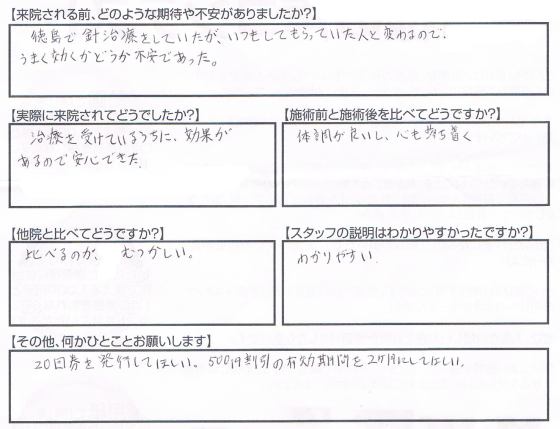 【来院される前、どのような期待や不安がありましたか?】
徳島で針治療をしていたが、いつもしてもらっていた人と変わるので、
うまく効くかどうか不安であった。
【実際に来院されてどうでしたか?】
治療を受けているうちに、効果が
あるので安心できた。
【施術前と施術後を比べてどうですか?】
体調が良いし、心も落ち着く
【他院と比べてどうですか?】
比べるのが、むつかしい。
【スタッフの説明はわかりやすかったですか?】
わかりやすい。
【その他、何かひとことお願いします】
20回券を発行してほしい。500円割引の有効期間を2ヶ月にしてほしい。